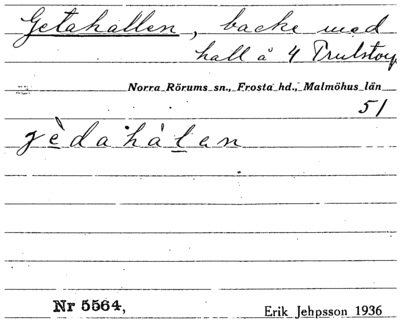 Getahallen, backe med
hall å 4 Trulstorp
Norra Rörums sn., Frosta hd., Malmöhus län
51
jèdahálan
Nr 5564,
Erik Jehpsson 1936